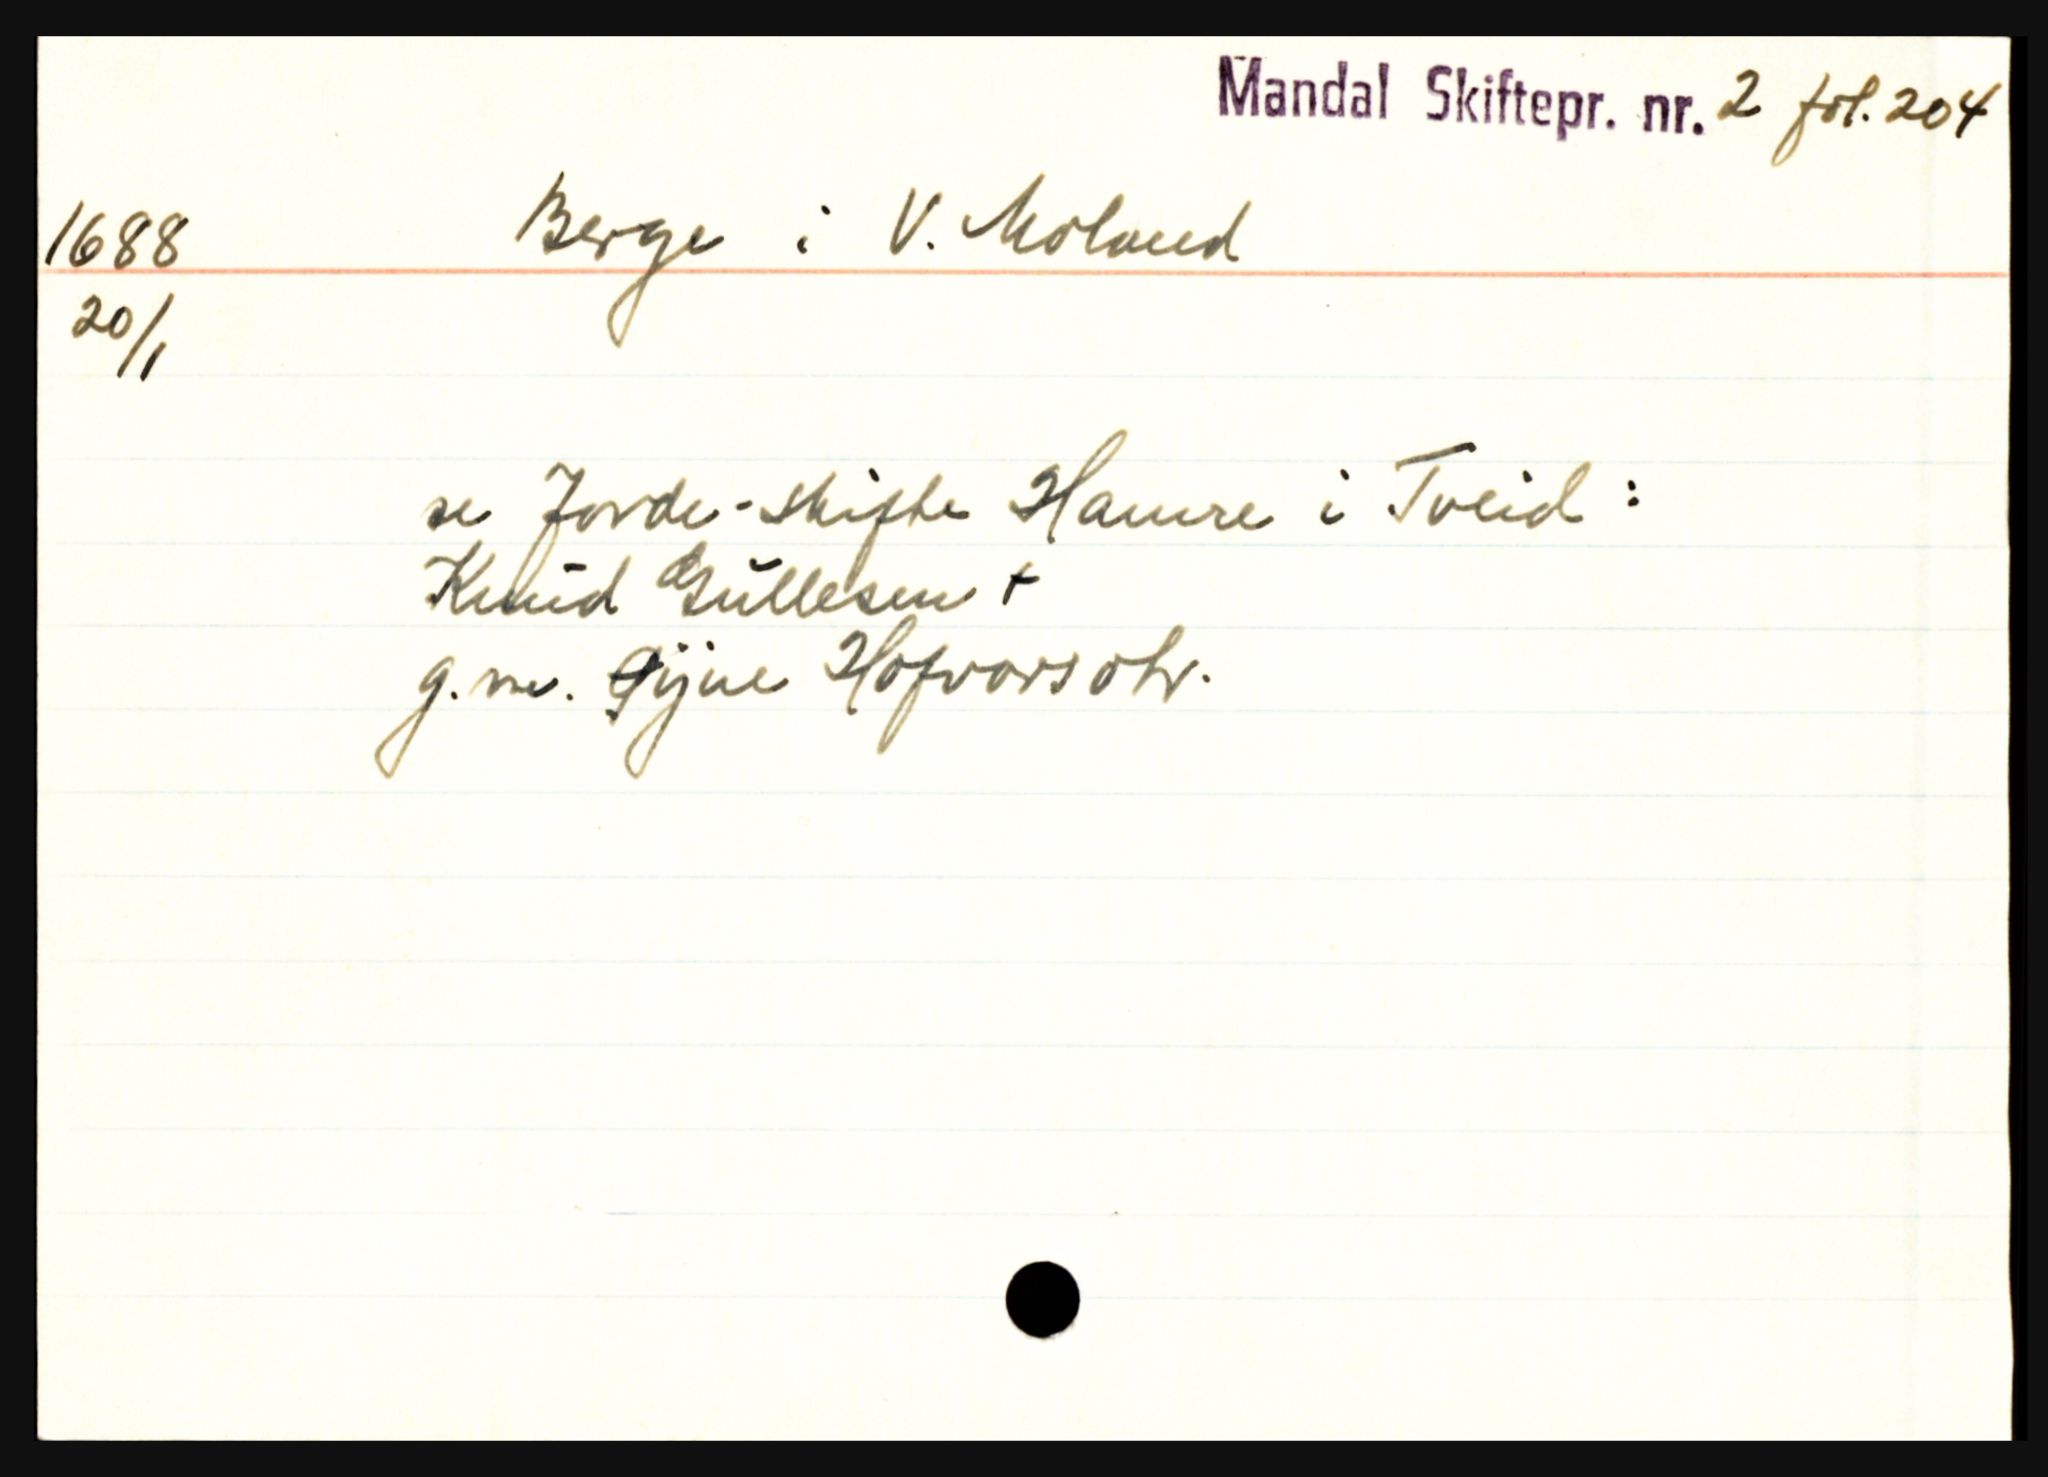 Mandal Skiftepr. nr. 2 fol. 204
1688 Berge i V. Moland
20/1
se Jorde-skifte Hamre i Tveid:
Knud Gullesen +
g.m. Øijne Hofvorsdtr.